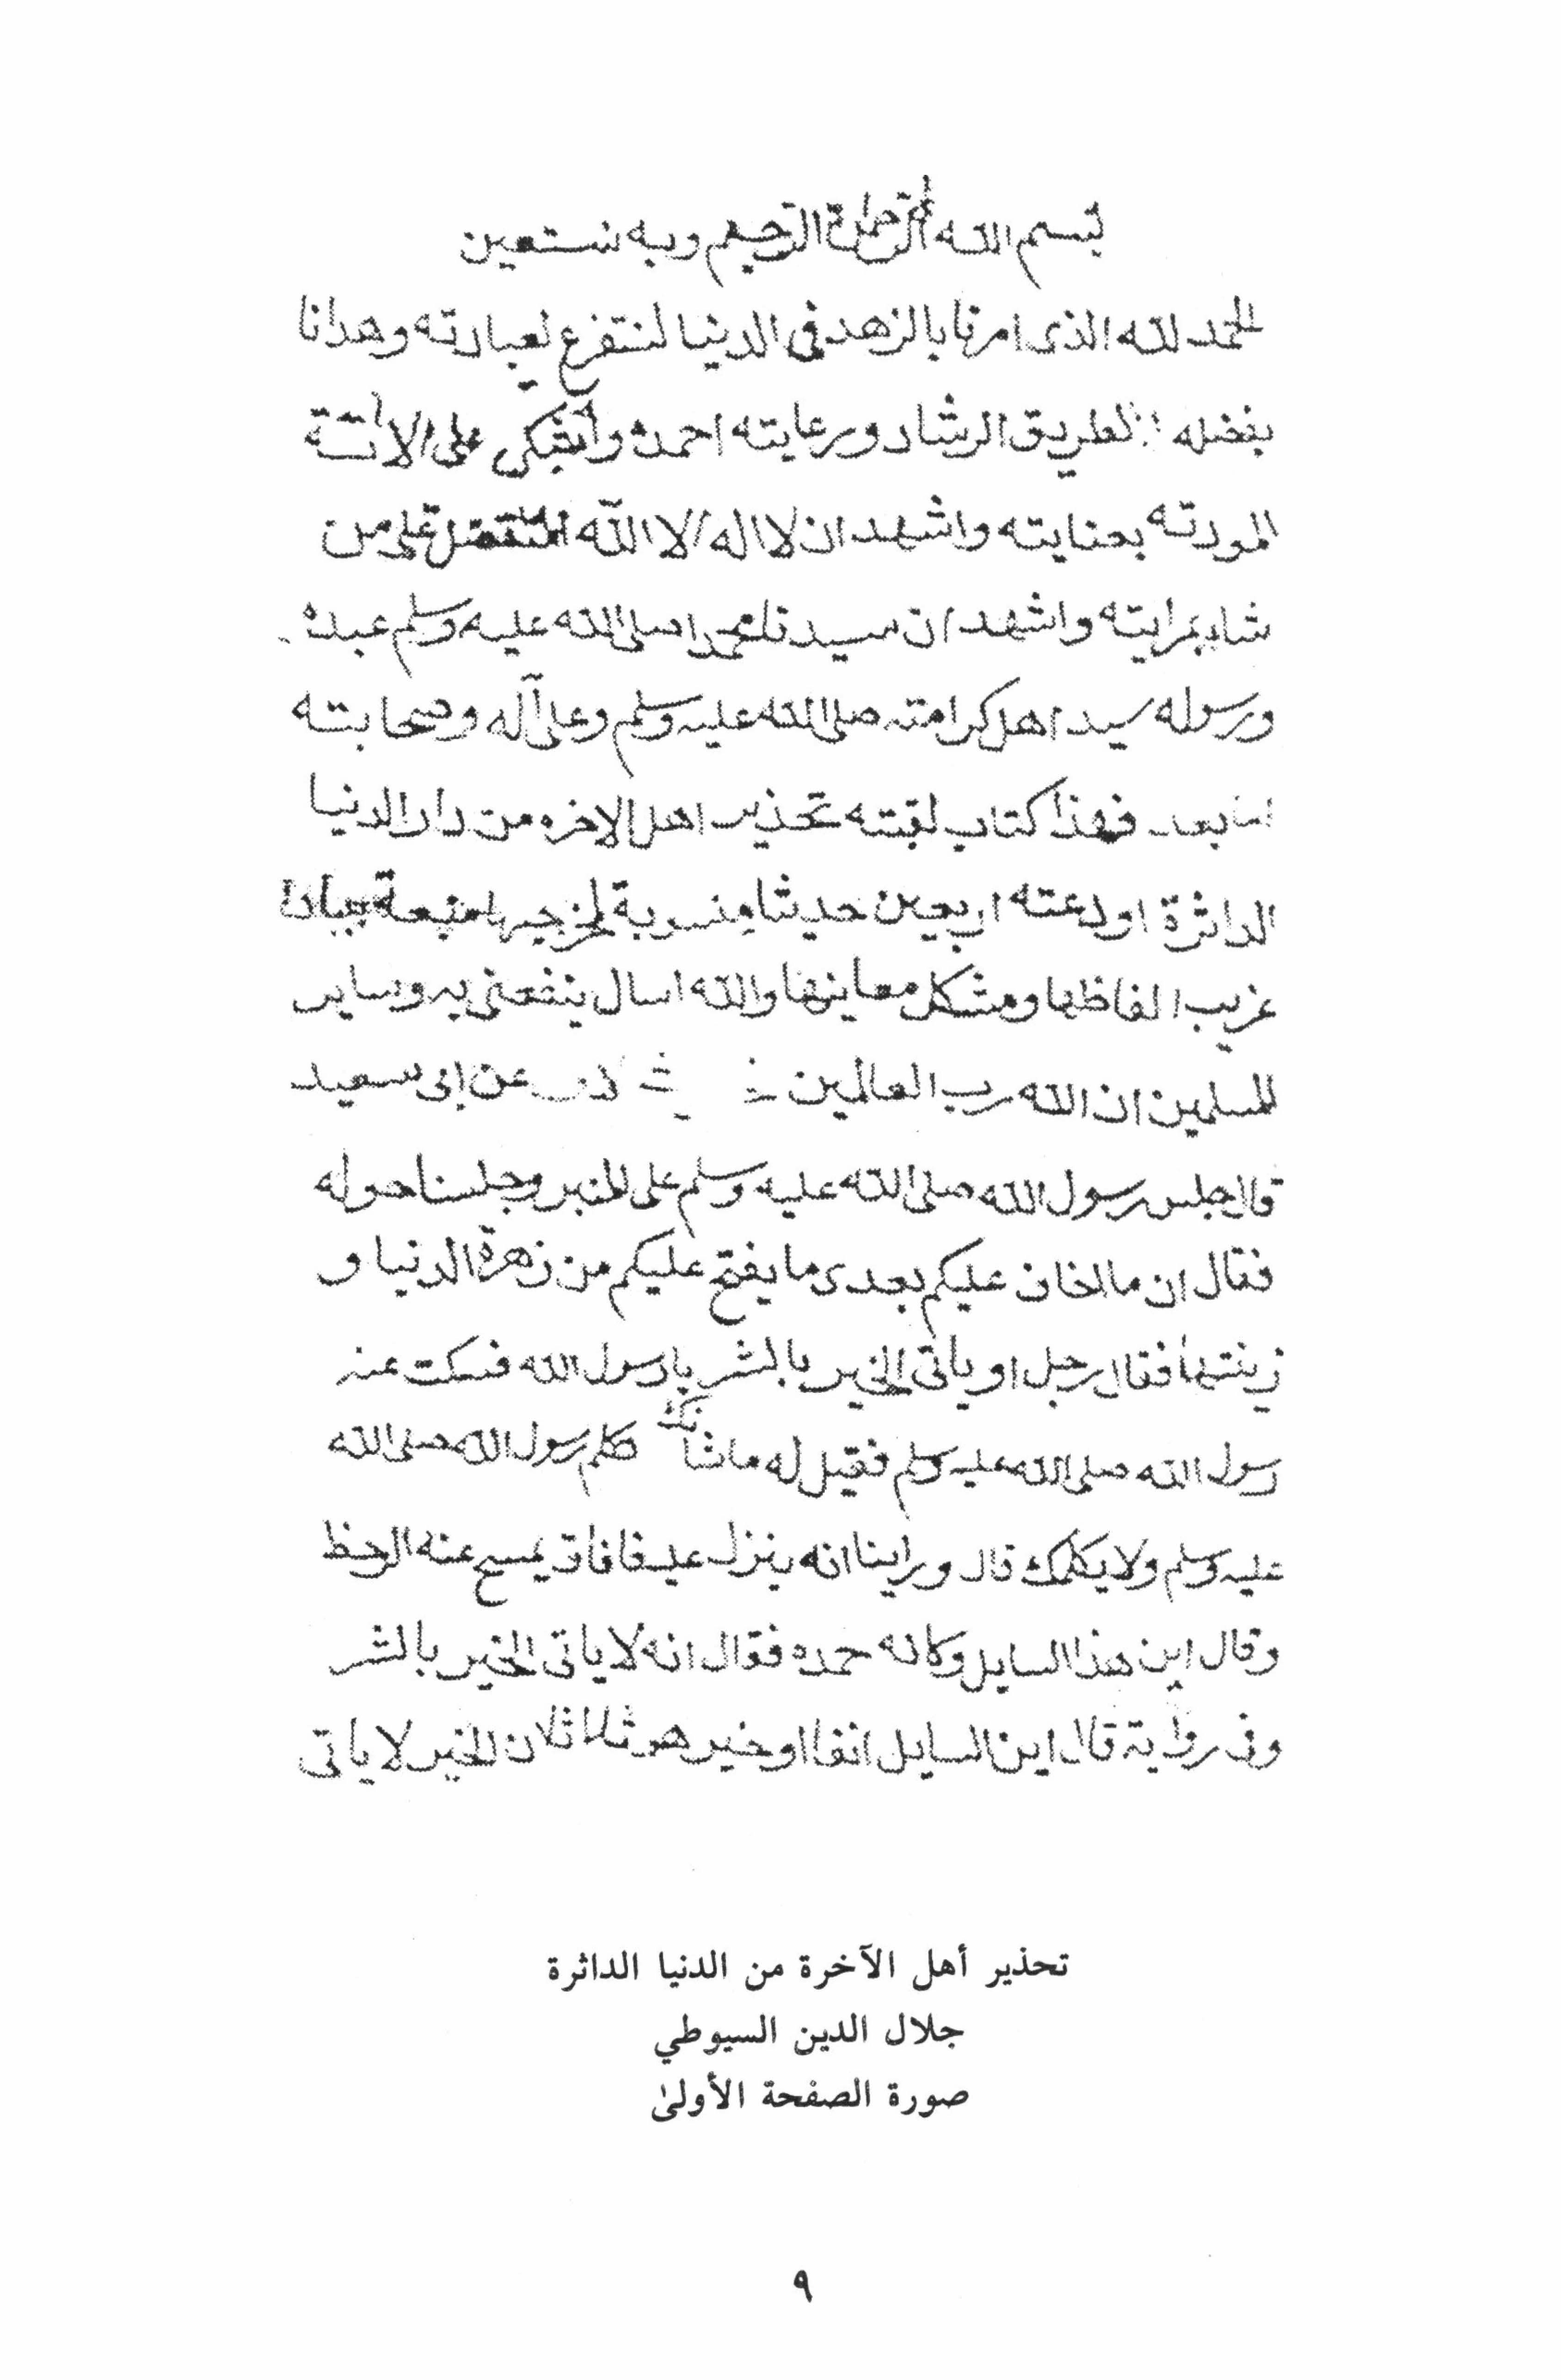 بسم الله الرحمن الرحيم وبه نستعين
الحمد لله الذى امرنا بالزهد في الدنيا لنتفرغ لعبادته وهدانا
بفضله لطريق الرشاد ورعايته احمده وأشكره على الائه
المعودة بعنايته واشهد ان لا اله الا الله من على
شابمرايته واشهد ان سيدنا محمدا صلى الله عليه وسلم عبده
ورسوله سيد اهل كرامته صلى الله عليه وسلم وعلى آله وصحابته
اما بعد فهذا كتاب لقبته تحذير اهل الاخره من دار الدنيا
الداثرة اودعته اربعين حديثا منسوبة لمخرجيها مبينة
غريب الفاظها ومشكل معاينها والله اسال ينفعني به وساير
المسلمين ان الله رب العالمين عن ابى سعيد
قال جلس رسول الله صلى الله عليه وسلم على المنبر وجلسنا حوله
فقال ان مما اخاف عليكم بعدى ما يفتح عليكم من زهرة الدنيا و
زينتها فقال رجل او ياتى الخير بالشر يا رسول الله فسكت عنه
رسول الله صلى الله عليه وسلم فقيل له ما شانك تكلم رسول الله صلى الله
عليه وسلم ولا يكلمك قال وراينا انه ينزل عليه فافاق يمسح عنه الرحضا
وقال اين هذا السايل وكانه حمده فقال انه لا ياتى الخير بالشر
وفي رواية قال اين السايل انفا اوخير هو ثلاثا ان الخير لا ياتى
تحذير أهل الآخرة من الدنيا الداثرة
جلال الدين السيوطي
صورة الصفحة الأولىٰ
٩